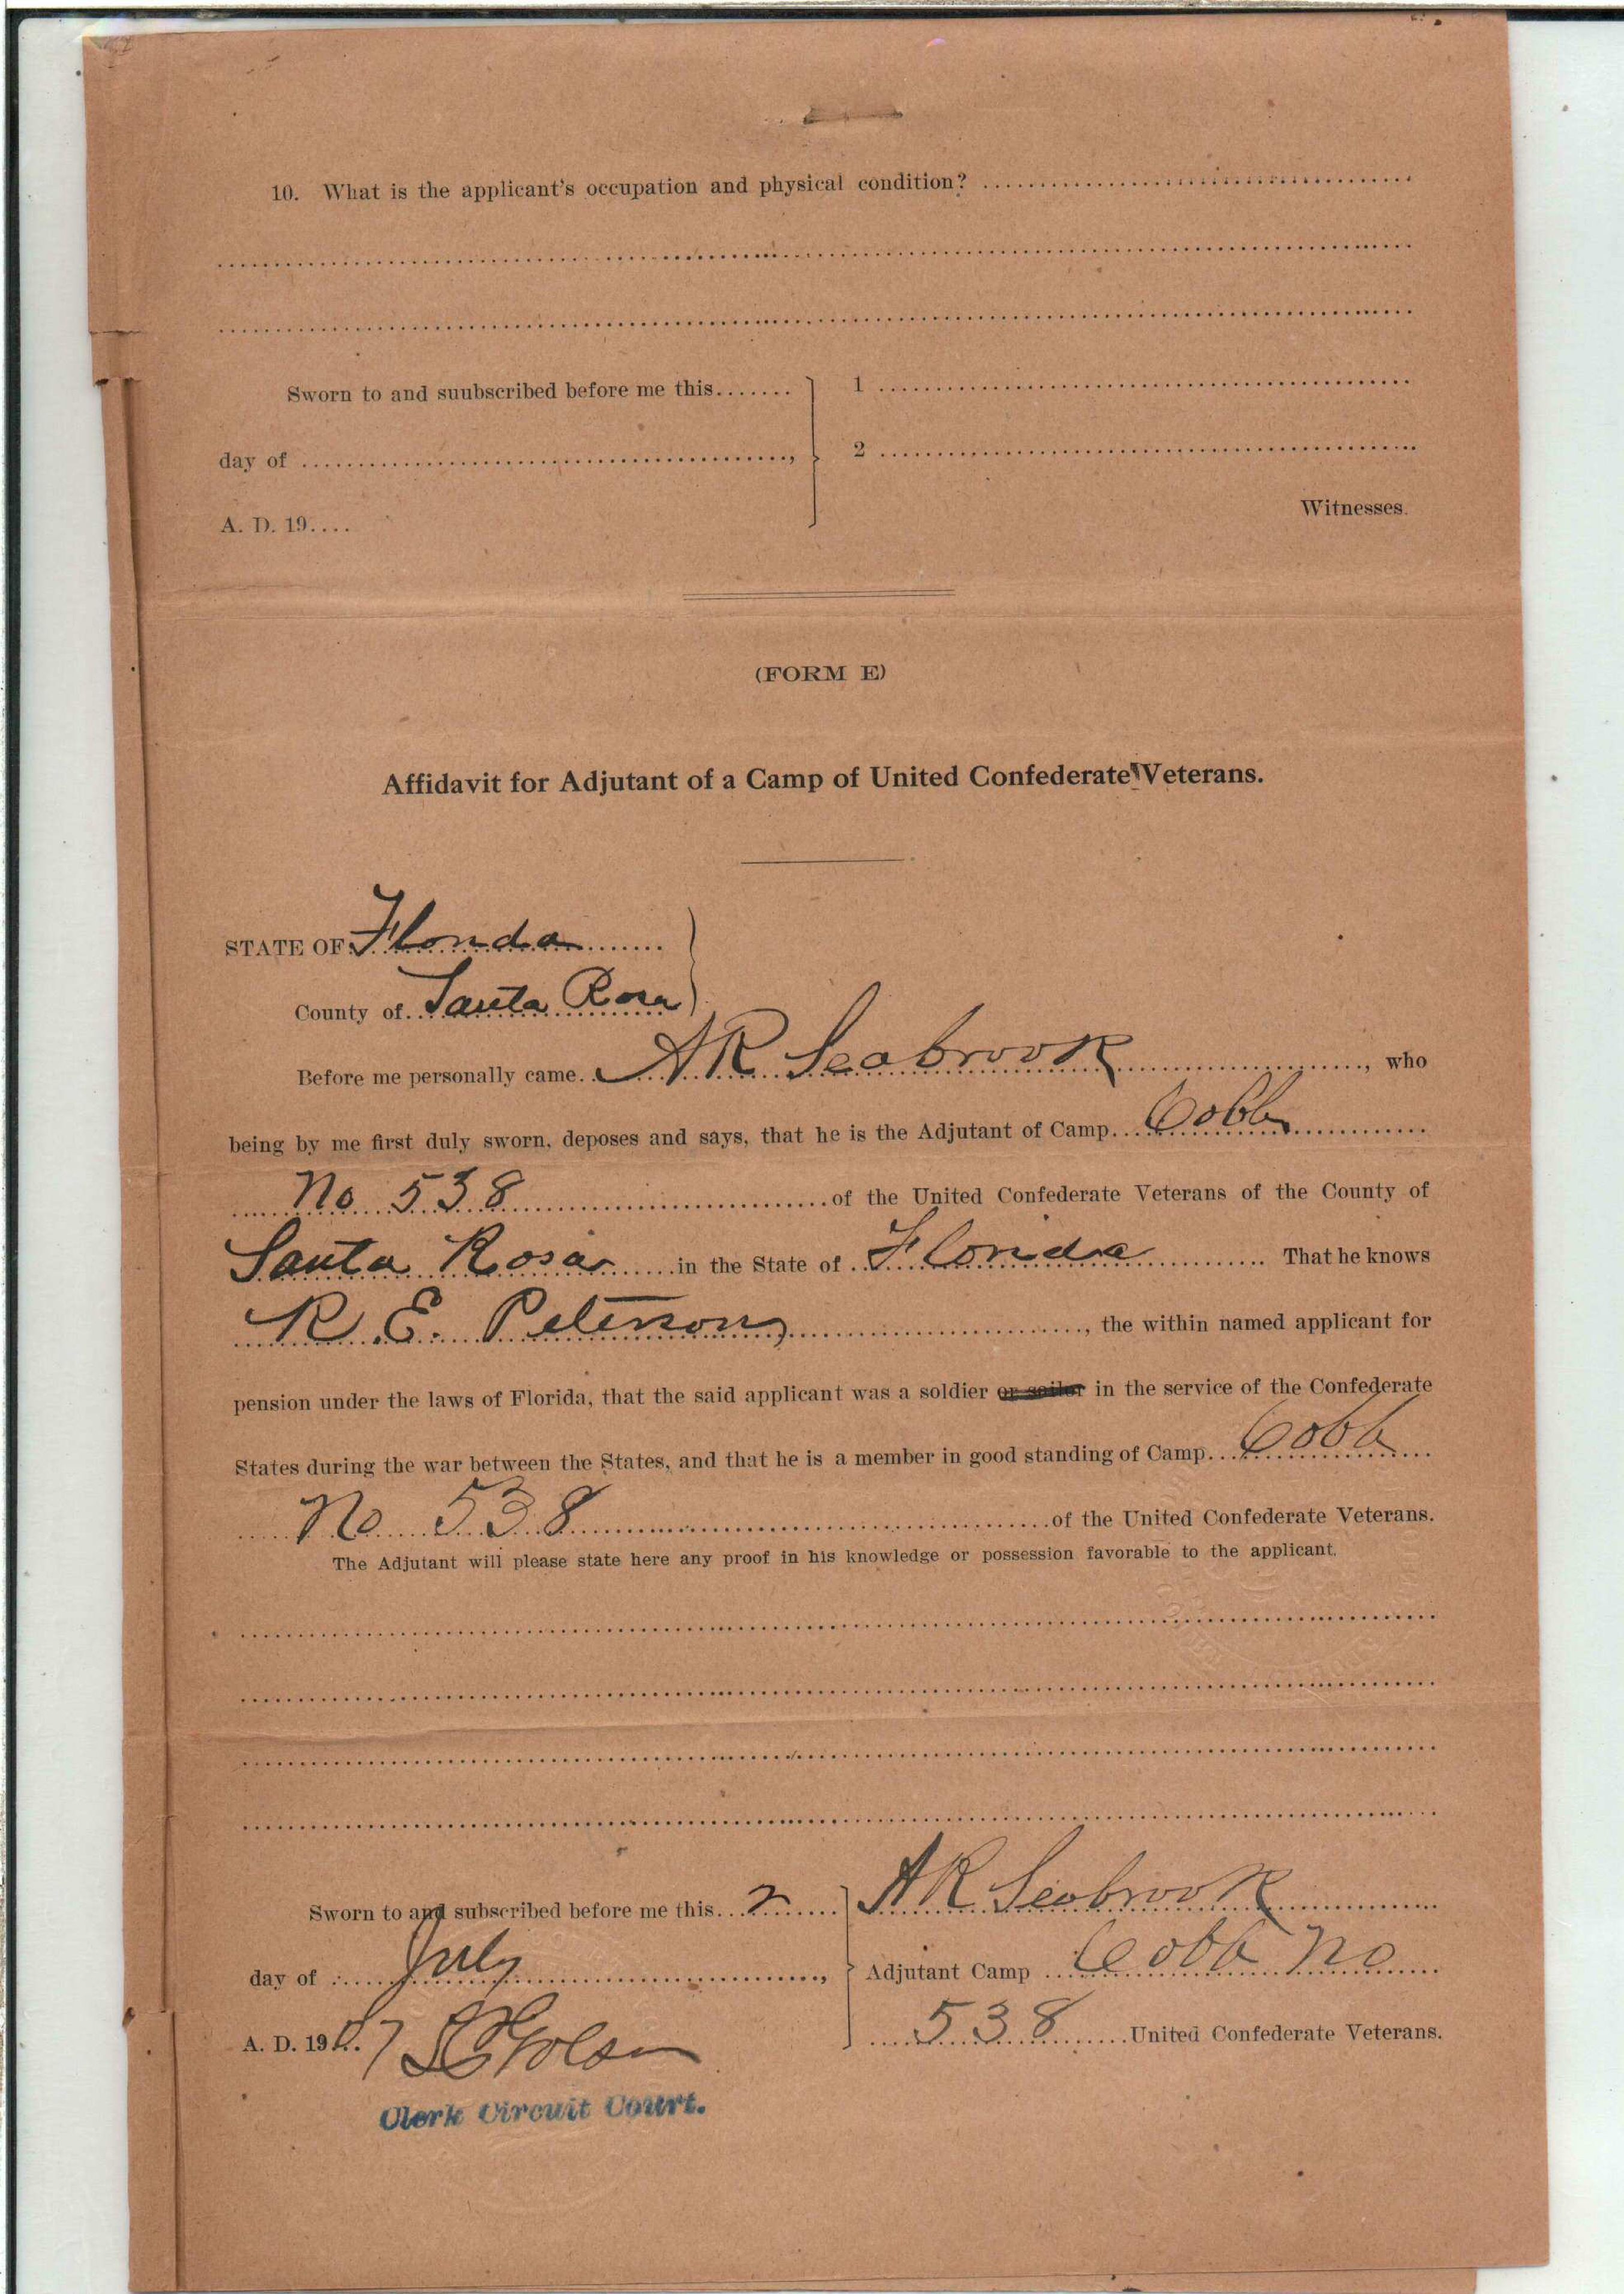 10. What is the applicant's occupation and physical condition?
Sworn to and suubscribed before me this....... 1
day of ........, 2
Witnesses.
A. D. 19....
(FORM E)
Affidavit for Adjutant of a Camp of United Confederate Veterans.
STATE OF Florida
County of Santa Rosa
Before me personally came A R Seabrook, who
being by me first duly sworn, deposes and says, that he is the Adjutant of Camp Cobb
No 538 of the United Confederate Veterans of the County of
Santa Rosa in the State of Florida That he knows
R. E. Peterson, the within named applicant for
pension under the laws of Florida, that the said applicant was a soldier or sailor in the service of the Confederate
States during the war between the States, and that he is a member in good standing of Camp Cobb
No 538 of the United Confederate Veterans.
The Adjutant will please state here any proof in his knowledge or possession favorable to the applicant.
Sworn to and subscribed before me this 2 A R Seabrook
day of July, Adjutant Camp Cobb No
A. D. 1907 538 United Confederate Veterans.
Clerk Circuit Court.